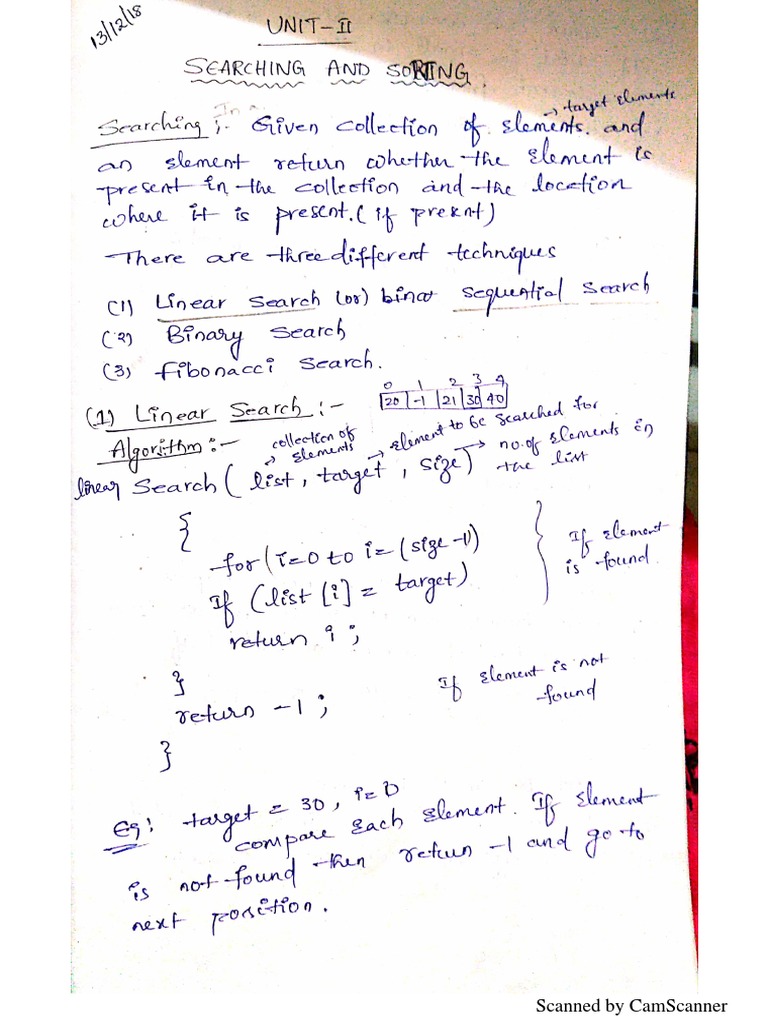 13/12/18
UNIT-II
SEARCHING AND SORTING.
→ target elements
Searching:- Given collection of elements. and
an element return whether the element is
present in the collection and the location
where it is present. (if present)
There are three different techniques
(1) Linear Search (or) binar sequential search
(2) Binary Search
(3) Fibonacci Search.
0 1 2 3 4
(1) Linear Search:- 20 -1 21 30 40
Algorithm:- → collection of elements → element to be searched for
linear Search (list, target, size) → no. of elements in the list
{
for (i=0 to i=(size-1)
If (list [i] = target) If element is found.
return i;
}
return -1; If element is not found
}
Eg: target = 30, i=0
compare each element. If element
is not found then return -1 and go to
next position.
Scanned by CamScanner